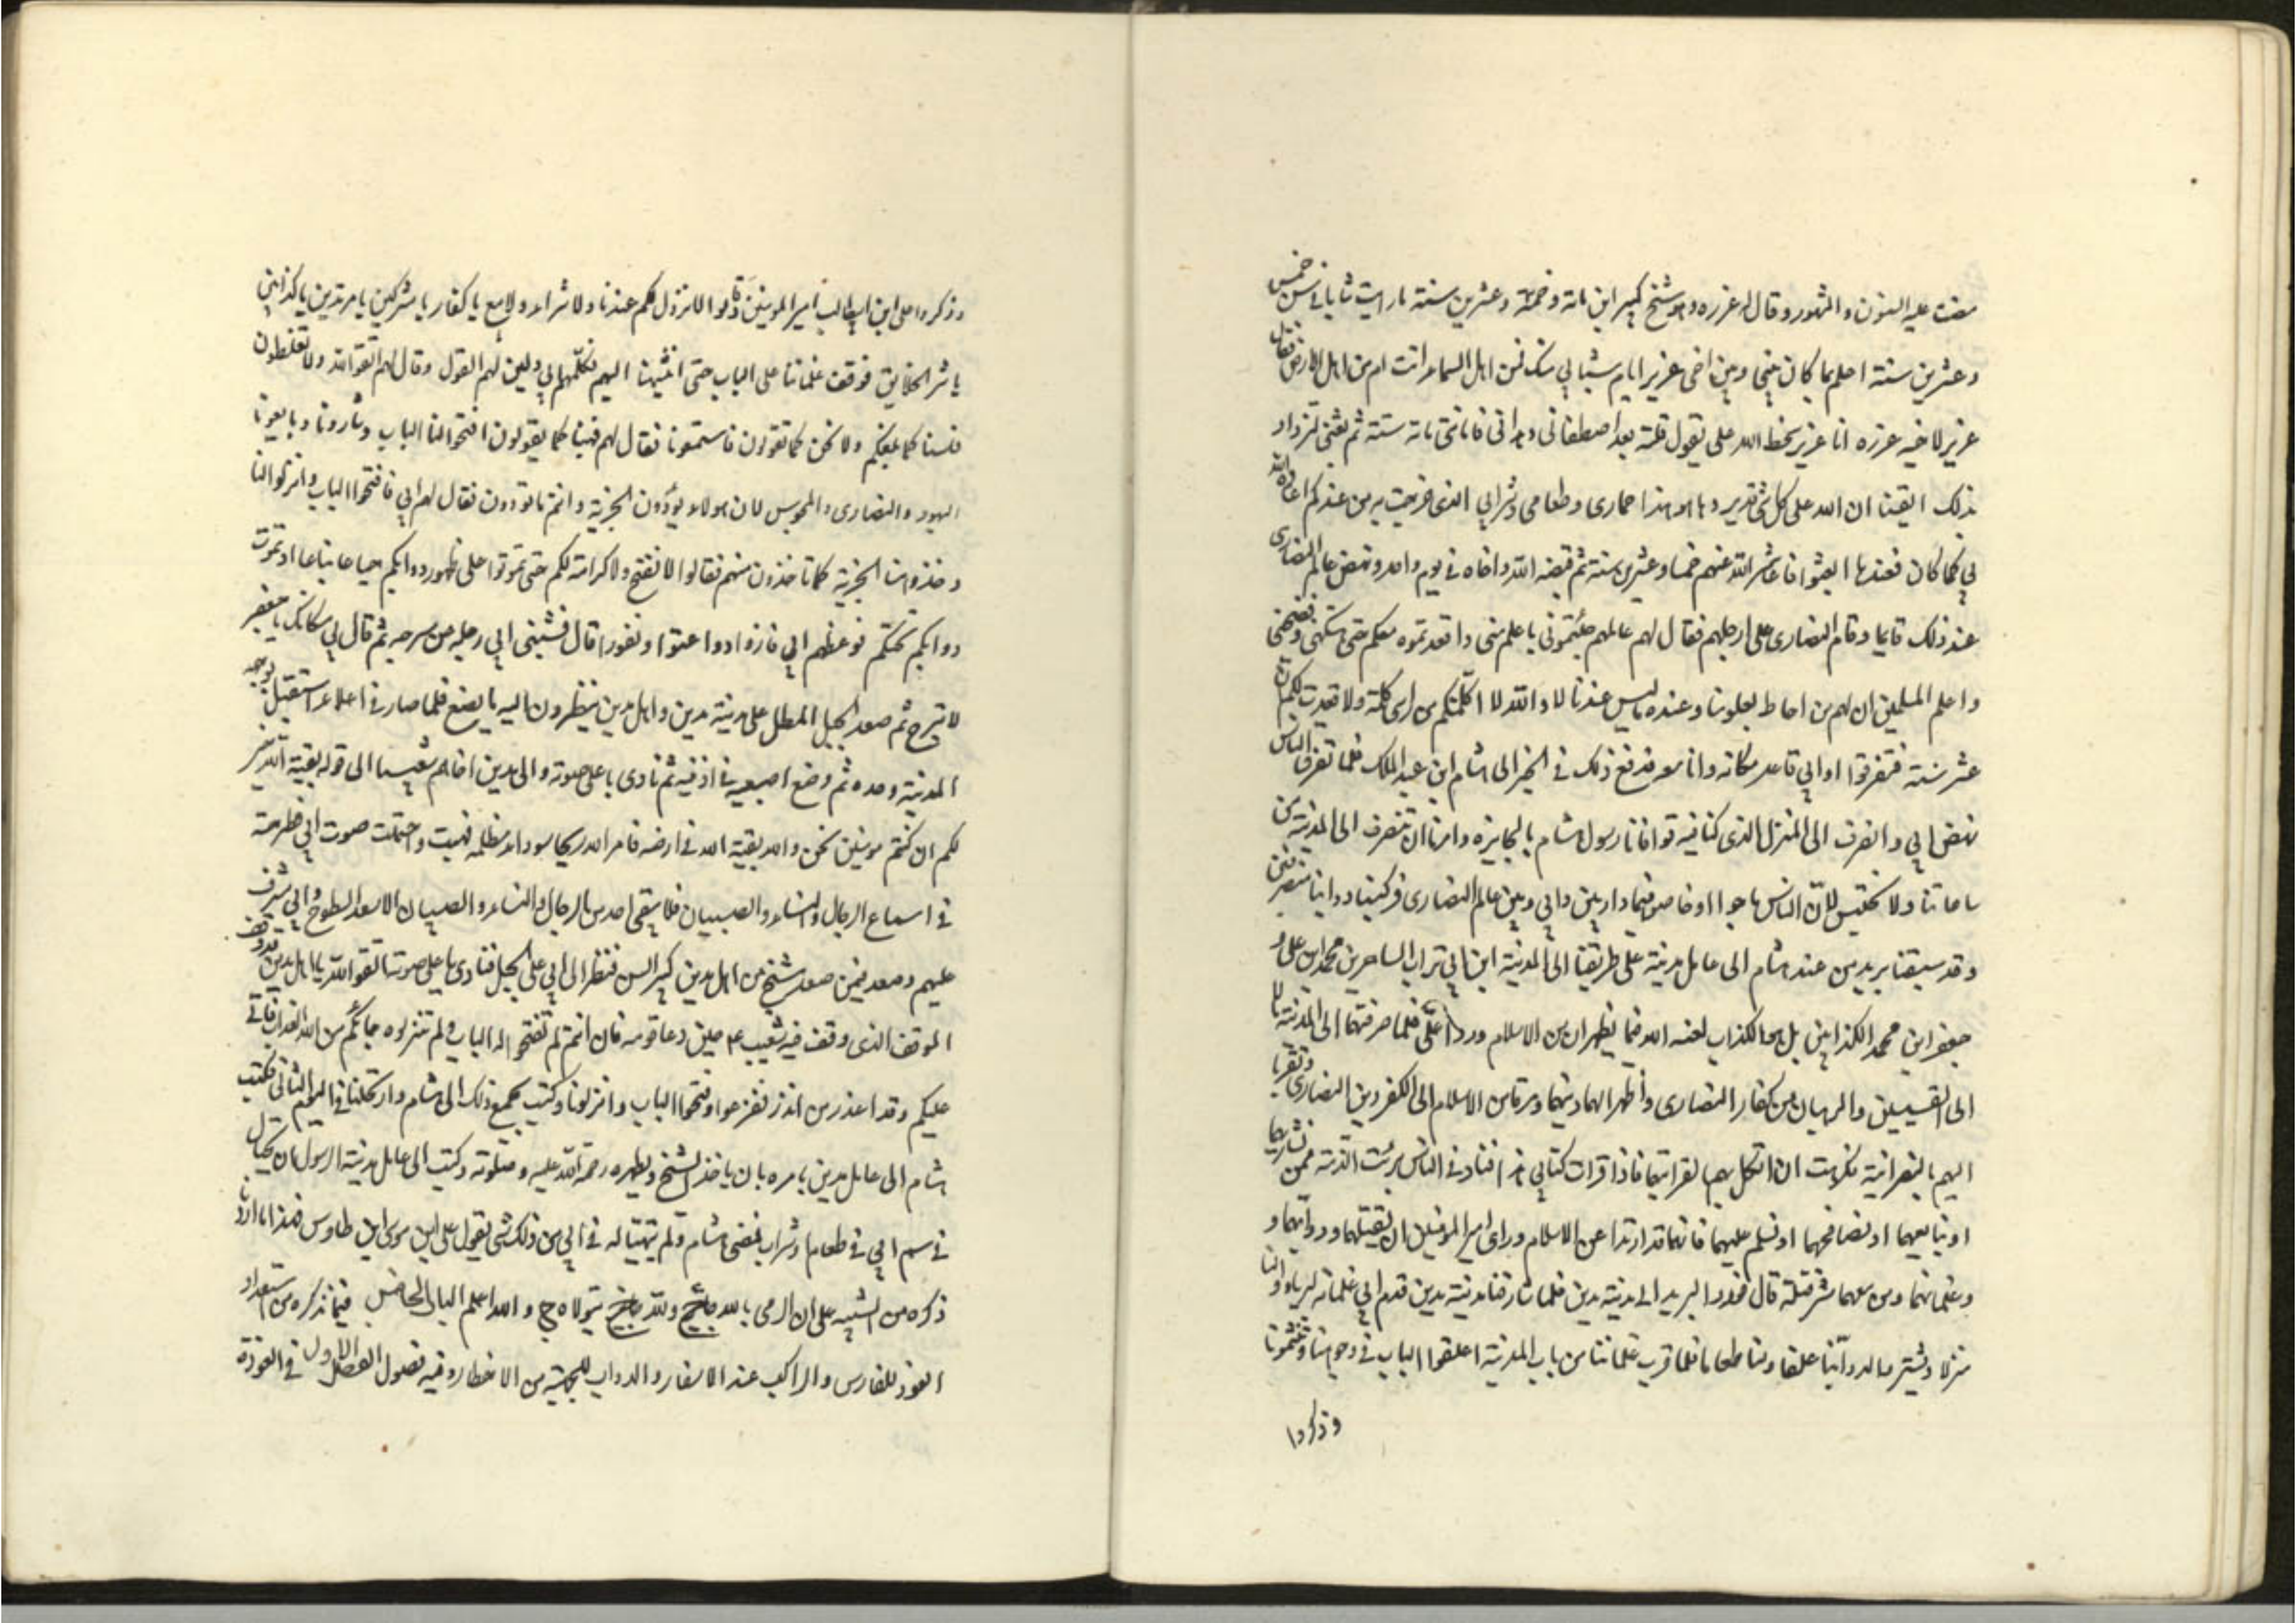 مضت عليه السنون والشهور وقال له عزره وهو شيخ كبير ابن مائة وخمسة وعشرين سنة ما رايت شابا في سن خمس
وعشرين سنة اعلم بما كان بيني وبين اخي عزير ايام شبابي منك فمن اهل السماء انت ام من اهل الارض فقال
عزير لاخيه عزره انا عزير سخط الله علي بقول قلته بعد اصطفاني وهداني فاماتني مائة سنة ثم بعثني لتزداد
بذلك ايقينا ان الله على كل شئ قدير وها هو هذا حماري وطعامي وشرابي الذي خرجت به من عندكم اعاده الله
لي كما كان فعندها ايقنوا فاعاشه الله عنهم خمسا وعشرين سنة ثم قبضه الله واخاه في يوم واحد ونهض عالم النصارى
عند ذلك قايما وقام النصارى على ارجلهم فقال لهم عالمهم جئتموني باعلم مني واقعدتموه معكم حتى هتكني وفضحني
واعلم المسلمين ان لهم من احاط بعلومنا وعنده ما ليس عندنا لا والله لا اكلمتكم من راسي كلمة ولا قعدت لكم ان
عشر سنة فتفرقوا وابي قاعد مكانه وانا معه فرفع ذلك في الخبر الى هشام ابن عبد الملك فلما تفرق الناس
نهض ابي وانصرف الى المنزل الذي كنا فيه فوافانا رسول هشام بالجايزه وامرنا ان ننصرف الى المدينة من
ساعاتنا ولا نحتبس لان الناس ماجوا وخاضوا فيما دار بين ابي وبين عالم النصارى فركبنا دوابنا منصرفين
وقد سبقنا بريد من عند هشام الى عامل مدينة على طريقنا الى المدينة ابن ابي تراب الساحرين محمد ابن علي و
جعفر ابن محمد الكذابين بل هو الكذاب لعنه الله فيما يظهران من الاسلام وردا علي فلما صرفتهما الى المدينة مالا
الى القسيسين والرهبان من كفار النصارى واظهرا لهما دينهما ومرقا من الاسلام الى الكفر دين النصارى وتقربا
اليهم بالنصرانية فكرهت ان انكل بهم لقرابتهما فاذا قرات كتابي هذا فناد في الناس برئت الذمة ممن يشاريهما
او يبايعهما او يصافحهما او يسلم عليهما فانهما قد ارتدا عن الاسلام وراى امير المومنين ان يقتلهما ودوابهما و
وغلمانهما ومن معهما شر قتلة قال فورد البريد الى مدينة مدين فلما شارفنا مدينة مدين قدم ابي غلمانه ليرتادوا لنا
منزلا ويشتروا لدوابنا علفا ولنا طعاما فلما قرب غلماننا من باب المدينة اغلقوا الباب في وجوهنا وشتمونا
وذكروا
وذكروا علي ابن ابيطالب امير المومنين وقالوا لا نزول لكم عندنا ولا شراء ولا بيع يا كفار يا مشركين يا مرتدين يا كذابين
يا شر الخلايق فوقف غلماننا على الباب حتى انتهينا اليهم فكلمهم ابي ولين لهم القول وقال لهم اتقوا الله ولا تغلظون
فلسنا كما بلغكم ولا نحن كما تقولون فاستمعونا فقال لهم فهبنا كما يقولون افتحوا لنا الباب وشارونا وبايعونا
اليهود والنصارى والمجوس لان هولاء يودون الجزية وانتم ما تودون فقال لهم ابي فافتحوا الباب وانزلوا لنا
وخذوا منا الجزية كما تاخذون منهم فقالوا لا نفتح ولا كرامة لكم حتى تموتوا على ظهور دوابكم جياعا نياعا او تموت
دوابكم تحتكم فوعظهم ابي فازدادوا عتوا ونفورا قال فثنى ابي رجله من سرجه ثم قال لي مكانك يا جعفر
لا تبرح ثم صعد الجبل المطل على مدينة مدين واهل مدين ينظرون اليه ما يصنع فلما صار في اعلاه استقبل بوجهه
المدينة وحده ثم وضع اصبعيه في اذنيه ثم نادى باعلى صوته والى مدين اخاهم شعيبا الى قوله بقية الله خير
لكم ان كنتم مومنين نحن والله بقية الله في ارضه فامر الله ريحا سوداء مظلمة فهبت واحتملت صوت ابي فطرحته
في اسماع الرجال والنساء والصبيان فلا بقي احد من الرجال والنساء والصبيان الا صعد السطوح وابي مشرف
عليهم وصعد فيمن صعد شيخ من اهل مدين كبير السن فنظر الى ابي على الجبل فنادى باعلى صوته اتقوا الله يا اهل مدين فقد وقف
الموقف الذي وقف فيه شعيب ع حين دعا قومه فان انتم لم تفتحوا له الباب ولم تنزلوه جائكم من الله العذاب فاني
عليكم وقد اعذر من انذر ففزعوا وفتحوا الباب وانزلونا وكتب بجميع ذلك الى هشام وارتحلنا في اليوم الثاني فكتب
هشام الى عامل مدين يامره بان ياخذ الشيخ ويطمره رحمة الله عليه وصلوته وكتب الى عامل مدينة الرسول ان يحتال
في سم ابي في طعام او شراب فمضى هشام ولم يتهيا له في ابي من ذلك شئ يقول علي ابن موسى ابن طاوس فهذا ما اردنا
ذكره من التنبيه على ان الرمي بالله واللد والله اعلم الباب الخامس فيما نذكره من استعداد
العوذ للفارس والراكب عند الاسفار والدواب للحماية من الاخطار وفيه فصول الفصل الاول في العوذة